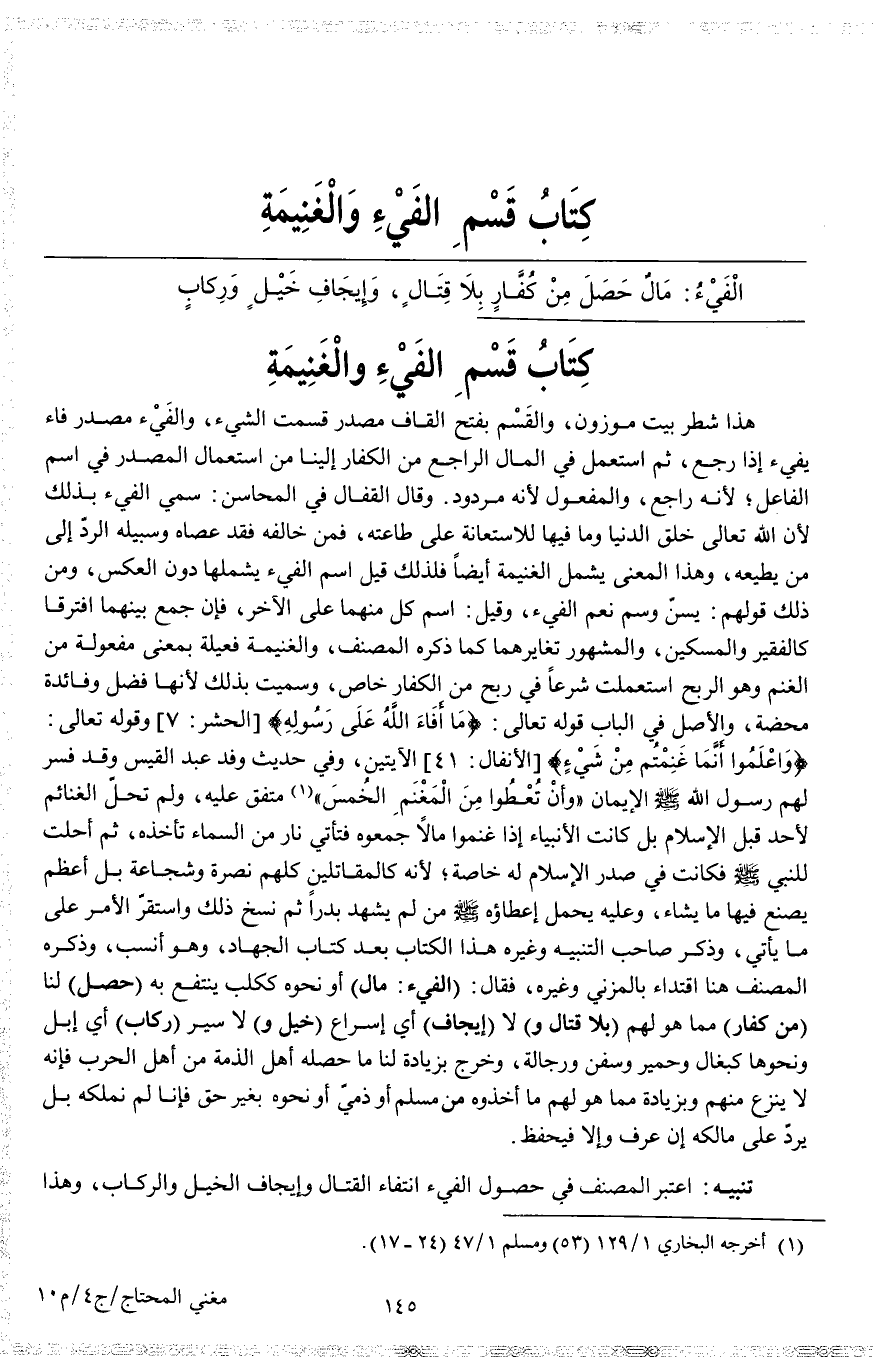 كِتَابُ قَسْمِ الفَيْءِ وَالْغَنِيمَةِ
الْفَيْءُ: مَالٌ حَصَلَ مِنْ كُفَّارٍ بِلَا قِتَالٍ، وَإِيجَافِ خَيْلٍ وَرِكابٍ
كِتَابُ قَسْمِ الفَيْءِ والْغَنِيمَةِ
هذا شطر بيت موزون، والقَسْم بفتح القاف مصدر قسمت الشيء، والفَيْء مصدر فاء
يفيء إذا رجع، ثم استعمل في المال الراجع من الكفار إلينا من استعمال المصدر في اسم
الفاعل؛ لأنه راجع، والمفعول لأنه مردود. وقال القفال في المحاسن: سمي الفيء بذلك
لأن الله تعالى خلق الدنيا وما فيها للاستعانة على طاعته، فمن خالفه فقد عصاه وسبيله الردّ إلى
من يطيعه، وهذا المعنى يشمل الغنيمة أيضاً فلذلك قيل اسم الفيء يشملها دون العكس، ومن
ذلك قولهم: يسنّ وسم نعم الفيء، وقيل: اسم كل منهما على الآخر، فإن جمع بينهما افترقا
كالفقير والمسكين، والمشهور تغايرهما كما ذكره المصنف، والغنيمة فعيلة بمعنى مفعولة من
الغنم وهو الربح استعملت شرعاً في ربح من الكفار خاص، وسميت بذلك لأنها فضل وفائدة
محضة، والأصل في الباب قوله تعالى: ﴿مَا أَفَاءَ اللَّهُ عَلَى رَسُولِهِ﴾ [الحشر: ٧] وقوله تعالى:
﴿وَاعْلَمُوا أَنَّمَا غَنِمْتُم مِنْ شَيْءٍ﴾ [الأنفال: ٤١] الآيتين، وفي حديث وفد عبد القيس وقد فسر
لهم رسول الله ﷺ الإيمان «وأنْ تُعْطُوا مِنَ الْمَغْنَمِ الخُمسَ»(١) متفق عليه، ولم تحلّ الغنائم
لأحد قبل الإسلام بل كانت الأنبياء إذا غنموا مالاً جمعوه فتأتي نار من السماء تأخذه، ثم أحلت
للنبي ﷺ فكانت في صدر الإسلام له خاصة؛ لأنه كالمقاتلين كلهم نصرة وشجاعة بل أعظم
يصنع فيها ما يشاء، وعليه يحمل إعطاؤه ﷺ من لم يشهد بدراً ثم نسخ ذلك واستقرّ الأمر على
ما يأتي، وذكر صاحب التنبيه وغيره هذا الكتاب بعد كتاب الجهاد، وهو أنسب، وذكره
المصنف هنا اقتداء بالمزني وغيره، فقال: (الفيء: مال) أو نحوه ككلب ينتفع به (حصل) لنا
(من كفار) مما هو لهم (بلا قتال و) لا (إيجاف) أي إسراع (خيل و) لا سير (ركاب) أي إبل
ونحوها كبغال وحمير وسفن ورجالة، وخرج بزيادة لنا ما حصله أهل الذمة من أهل الحرب فإنه
لا ينزع منهم وبزيادة مما هو لهم ما أخذوه من مسلم أو ذميّ أو نحوه بغير حق فإنا لم نملكه بل
يردّ على مالكه إن عرف وإلا فيحفظ.
تنبيه: اعتبر المصنف في حصول الفيء انتفاء القتال وإيجاف الخيل والركاب، وهذا
(١) أخرجه البخاري ١/١٢٩ (٥٣) ومسلم ١/٤٧ (٢٤ ـ ١٧).
١٤٥
مغني المحتاج/ج٤/م١٠